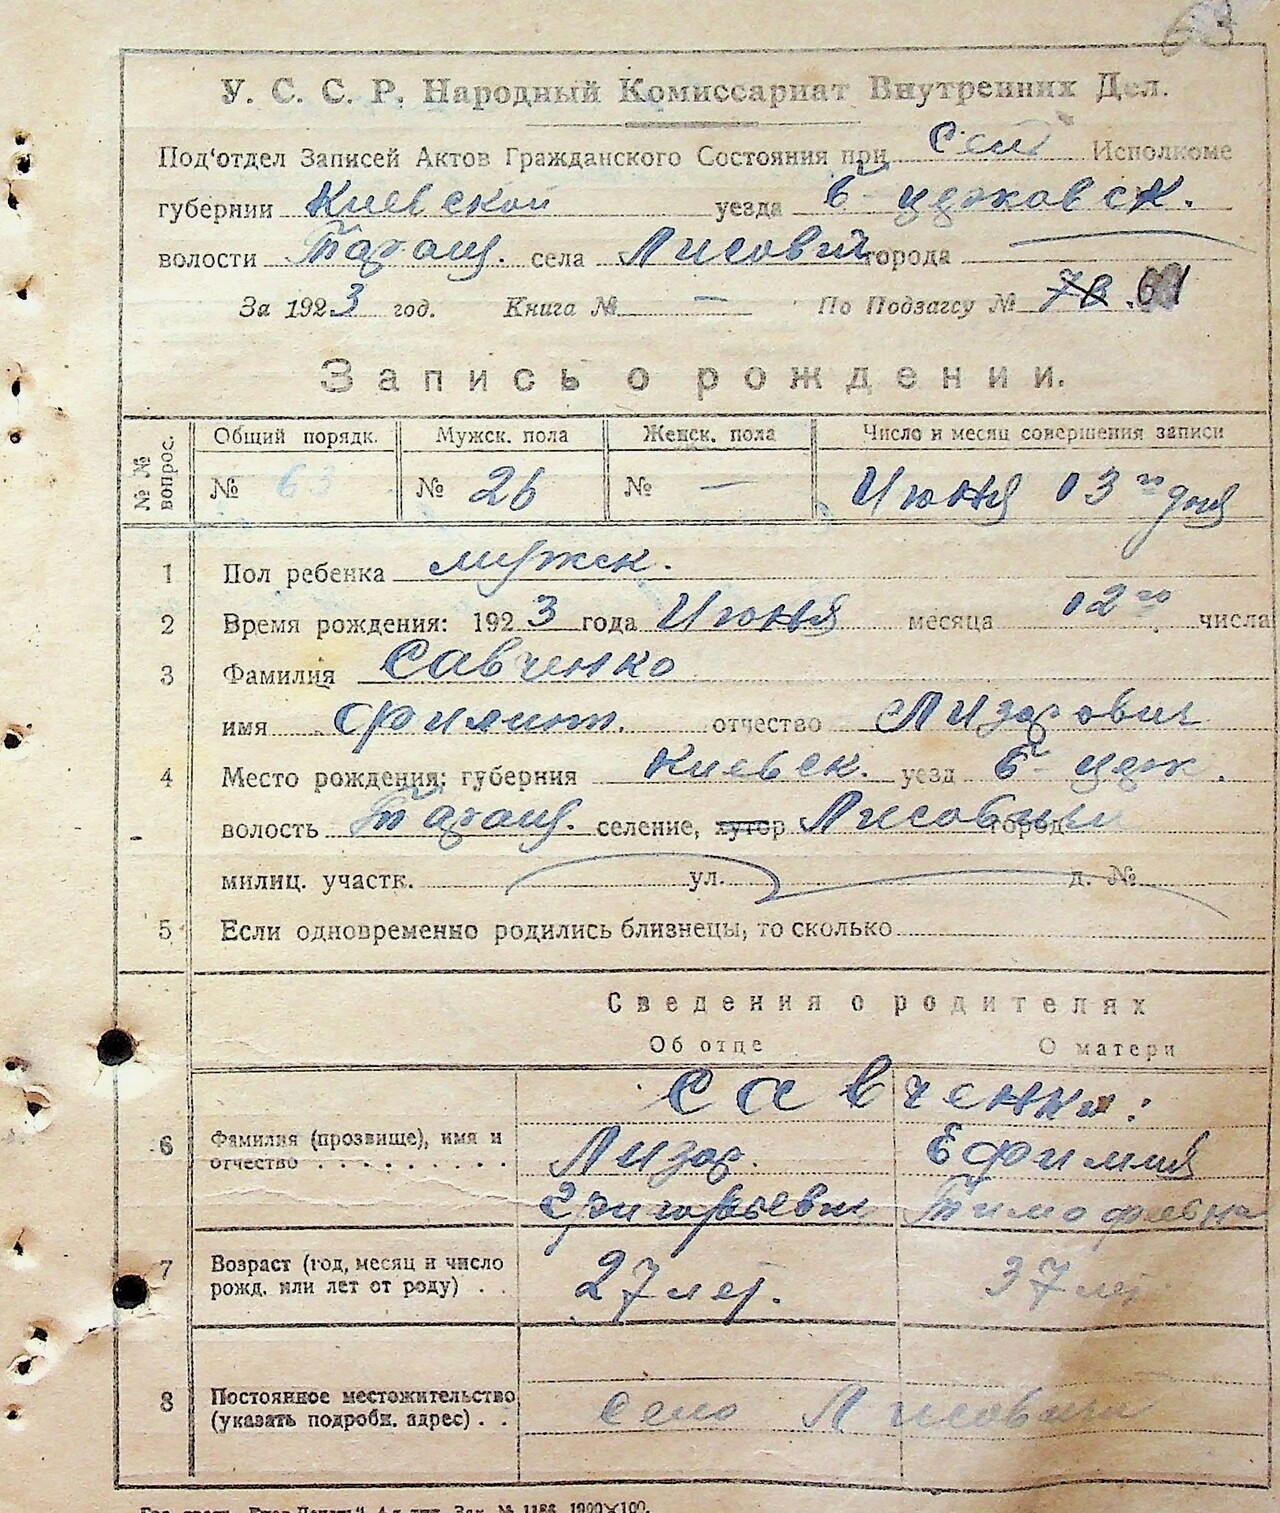 63
У. С. С. Р. Народный Комиссариат Внутренних Дел.
Под'отдел Записей Актов Гражданского Состояния при Сель Исполкоме
губернии Киевской уезда Б-церковск.
волости Таращ. села Лисович города
За 1923 год. Книга № — По Подзагсу № 78
Запись о рождении.
№ № вопрос. Общий порядк. Мужск. пола Женск. пола Число и месяц совершения записи
№ 63 № 26 № — Июня 03 го дня
1 Пол ребенка мужск.
2 Время рождения: 1923 года Июня месяца 02 го числа
3 Фамилия Савченко
имя Филип. отчество Лизарович
4 Место рождения: губерния Киевск. уезд Б-церк.
волость Таращ. селение, хутор Лисович город
милиц. участк. ул. д. №
5 Если одновременно родились близнецы, то сколько
Сведения о родителях
Об отце О матери
Савченки:
6 Фамилия (прозвище), имя и Лизар. Ефимия
отчество . . . . . . . . . Григорьевич Тимофеевна
7 Возраст (год, месяц и число
рожд. или лет от роду) . . 27 лет. 37 лет
8 Постоянное местожительство
(указать подробн. адрес) . . Село Лисовичи
№ 1186 1900×100.